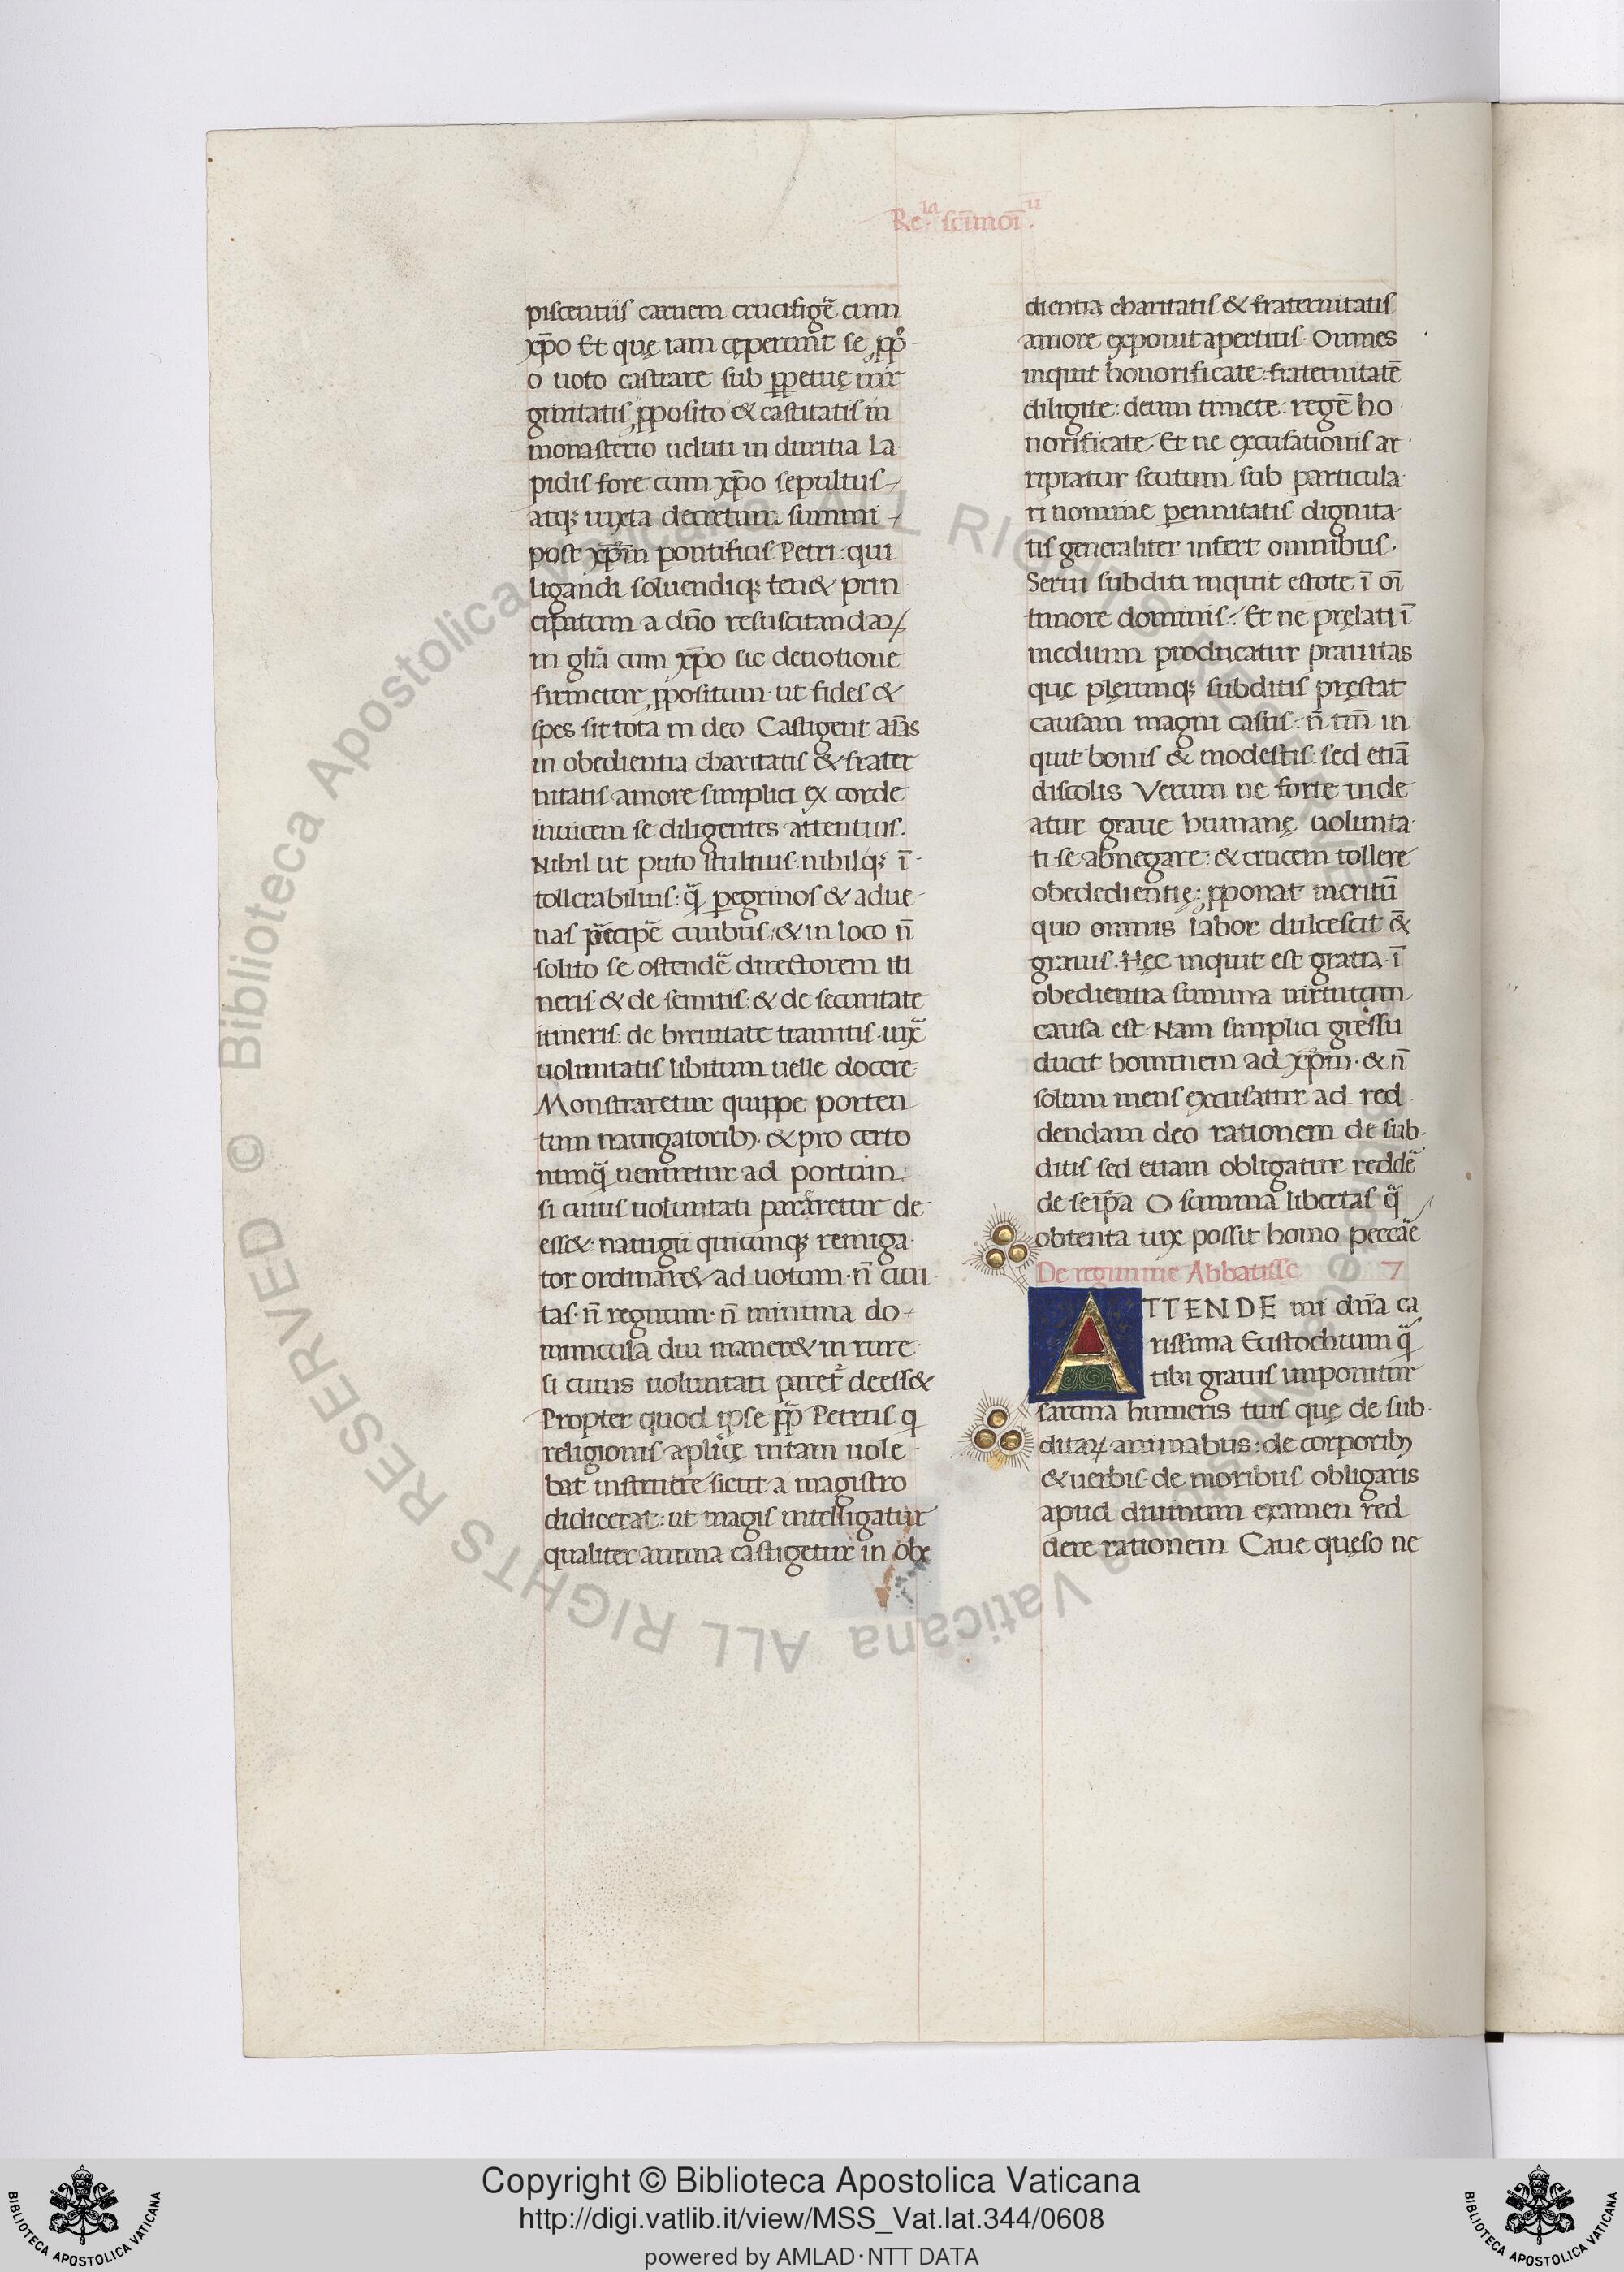 Re.la scīmoī.ii
piscentiis carnem crucifigē cum
xp̄o Et quę iam cęperunt se ꝓp̄
o uoto castrare sub ꝑpetuę uir
ginitatis ꝓposito & castitatis in
monasterio ueluti in duritia la
pidis fore cum xp̄o sepultus
atqꝫ iuxta decretum summi
post xp̄m pontificis Petri: qui
ligandi soluendiqꝫ ten& prin
cipatum a dn̄o resuscitandaꝝ
in glīa cum xp̄o sic deuotione
firmetur ꝓpositum ut fides &
spes sit tota in deo Castigent aīas
in obedientia charitatis & frater
nitatis amore simplici ex corde
inuicem se diligentes attentius.
Nihil ut puto stultius nihilqꝫ ī
tollerabilius: q̄ ꝑegrinos & adue
nas p̄cipē ciuibus: & in loco n̄
solito se ostendē directorem iti
neris & de semitis: & de securitate
itineris: de breuitate tramitis iux̄
uoluntatis libitum uelle docere
Monstraretur quippe porten
tum nauigatoribꝫ & pro certo
nunq̄ ueniretur ad portum:
si cuius uoluntati pararetur de
ess&: nauigii quicunqꝫ remiga
tor ordinar& ad uotum n̄ ciui
tas n̄ regnum n̄ minima do
muncula diu maner& in rure
si cuius uoluntati paret deess&
Propter quod ipse p̄p̄ Petrus q
religionis aplicę uitam uole
bat instruere sicut a magistro
didicerat: ut magis intelligatur
qualiter anima castigetur in obe
dientia charitatis & fraternitatis
amore exponit apertius. Omnes
inquit honorificate: fraternitatē
diligite: deum timete: regē ho
norificate Et ne excusationis ar
ripiatur scutum sub particula
ri nomine perinitatis dignita
tis generaliter infert omnibus.
Serui subditi inquit estote ī oī
timore dominis: Et ne pręlati ī
medium producatur prauitas
quę plerunqꝫ subditis pręstat
causam magni casus: n̄ tm̄ in
quit bonis & modestis: sed etiā
discolis Verum ne forte uide
atur graue humanę uolunta
ti se abnegare: & crucem tollere
obededientię: ꝓponat meritū
quo omnis labor dulcescit &
grauis. Hęc inquit est gratia ī
obedientia summa uirtutum
causa est Nam simplici gressu
ducit hominem ad xp̄m. & n̄
solum mens excusatur ad red
dendam deo rationem de sub
ditis sed etiam obligatur reddē
de seip̄a O summa libertas q̄
obtenta uix possit homo peccāe
De regimine Abbatissę 7
ATTENDE mi dn̄a ca
rissima Eustochium q̄
tibi grauis imponitur
sarcina humeris tuis quę de sub
ditaꝝ animabus: de corporibꝫ
& uerbis de moribus obligaris
apud diuinum examen red
dere rationem Caue quęso ne
© Biblioteca Apostolica Vaticana ALL RIGHTS RESERVED
© Biblioteca Apostolica Vaticana ALL RIGHTS RESERVED
Copyright © Biblioteca Apostolica Vaticana
http://digi.vatlib.it/view/MSS_Vat.lat.344/0608
powered by AMLAD·NTT DATA
BIBLIOTECA APOSTOLICA VATICANA
BIBLIOTECA APOSTOLICA VATICANA